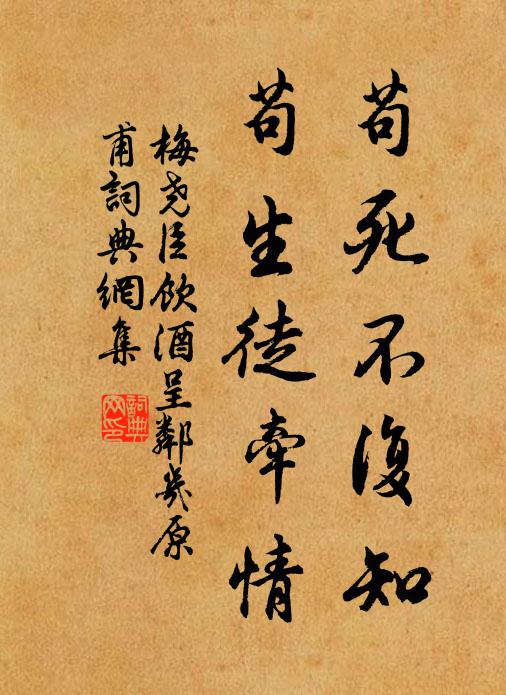 苟死不復知
苟生徒牽情
梅堯臣飲酒呈鄰幾原
甫詞典網集
詞典
网印